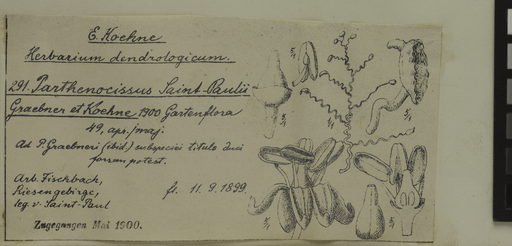 E. Koehne
Herbarium dendrologicum.
291. Parthenocissus Saint-Paulii
Graebner et Koehne 1900 Gartenflora
49, apr./maj.
Ad P. Graebneri (ibid.) subspeciei titulo duci
forsan potest.
Arb. Fischbach,
Riesengebirge,
leg. v. Saint-Paul
fr. 11. 9. 1899.
Zugegangen Mai 1900.